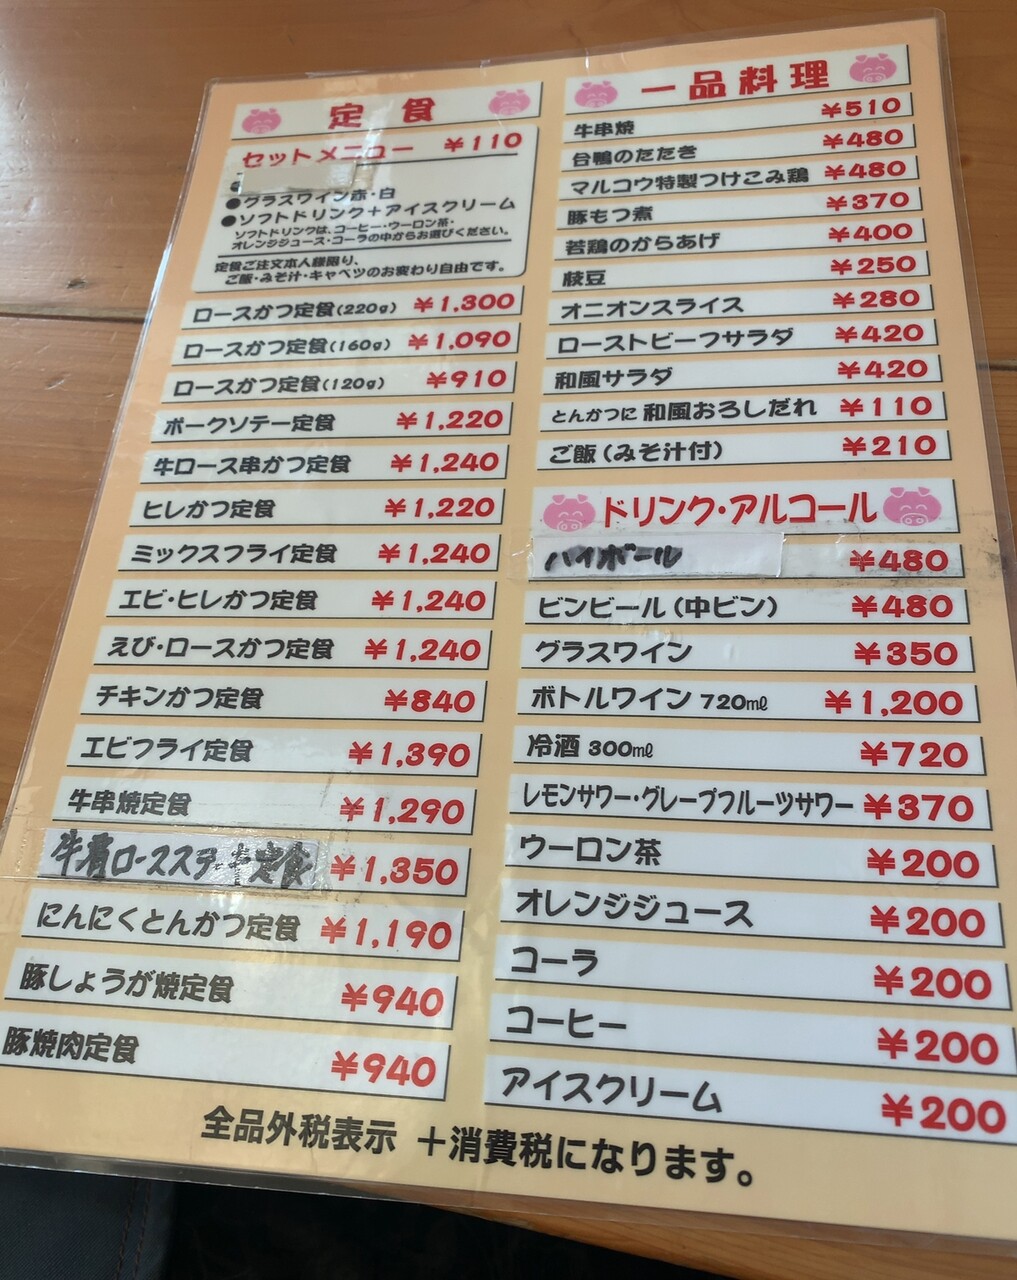 定食
セットメニュー ¥110
●グラスワイン赤・白
●ソフトドリンク+アイスクリーム
ソフトドリンクは、コーヒー・ウーロン茶・
オレンジジュース・コーラの中からお選びください。
定食ご注文本人様限り、
ご飯・みそ汁・キャベツのお変わり自由です。
ロースかつ定食(220g) ¥1,300
ロースかつ定食(160g) ¥1,090
ロースかつ定食(120g) ¥910
ポークソテー定食 ¥1,220
牛ロース串かつ定食 ¥1,240
ヒレかつ定食 ¥1,220
ミックスフライ定食 ¥1,240
エビ・ヒレかつ定食 ¥1,240
えび・ロースかつ定食 ¥1,240
チキンかつ定食 ¥840
エビフライ定食 ¥1,390
牛串焼定食 ¥1,290
牛肩ロースステーキ定食 ¥1,350
にんにくとんかつ定食 ¥1,190
豚しょうが焼定食 ¥940
豚焼肉定食 ¥940
一品料理
牛串焼 ¥510
合鴨のたたき ¥480
マルコウ特製つけこみ鶏 ¥480
豚もつ煮 ¥370
若鶏のからあげ ¥400
枝豆 ¥250
オニオンスライス ¥280
ローストビーフサラダ ¥420
和風サラダ ¥420
とんかつに 和風おろしだれ ¥110
ご飯(みそ汁付) ¥210
ドリンク・アルコール
ハイボール ¥480
ビンビール(中ビン) ¥480
グラスワイン ¥350
ボトルワイン 720㎖ ¥1,200
冷酒 300㎖ ¥720
レモンサワー・グレープフルーツサワー ¥370
ウーロン茶 ¥200
オレンジジュース ¥200
コーラ ¥200
コーヒー ¥200
アイスクリーム ¥200
全品外税表示 +消費税になります。